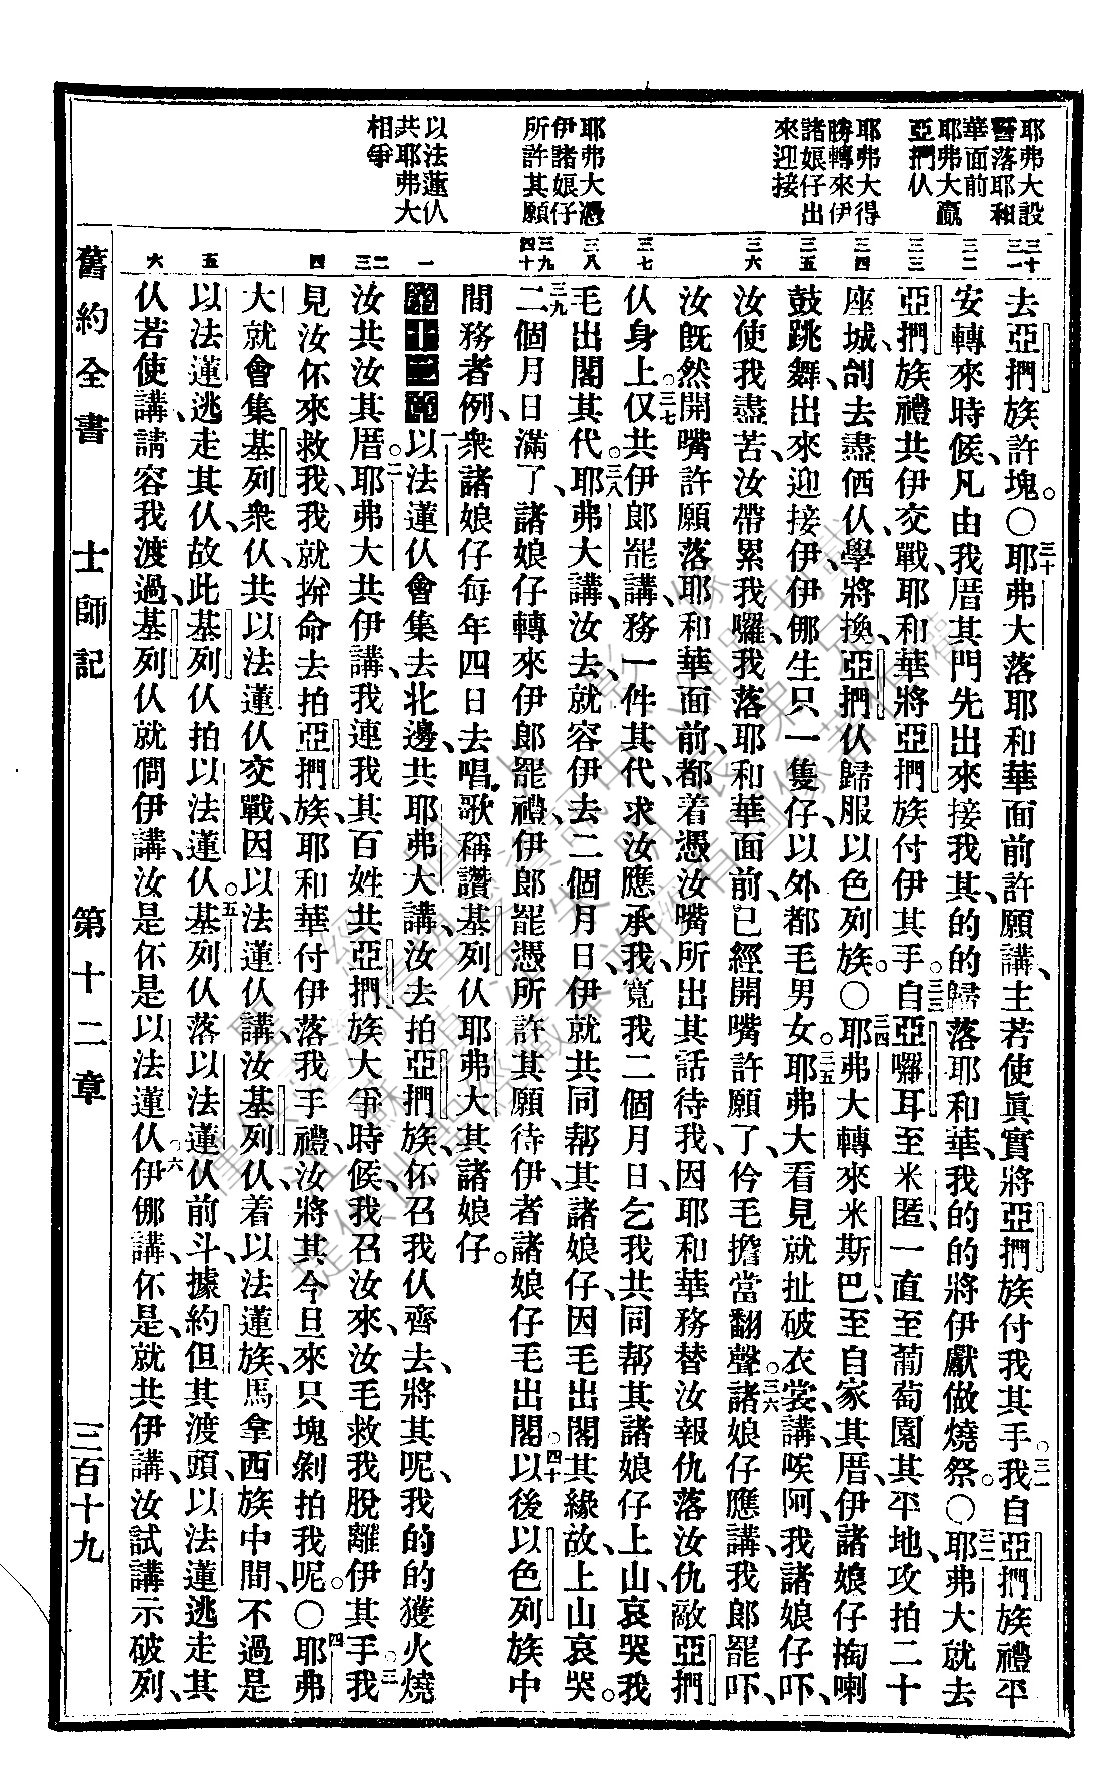 耶弗大設
誓落耶和
華面前
耶弗大贏
亞捫仈
耶弗大得
勝轉來伊
諸娘仔出
來迎接
耶弗大憑
伊諸娘仔
所許其願
以法蓮仈
共耶弗大
相爭
三十
三一
三二
三三
三四
三五
三六
三七
三八
三九
四十
一
二
三
四
五
六
去亞捫族許塊。〇三十耶弗大落耶和華面前許願講、主若使眞實將亞捫族付我其手。三一我自亞捫族禮平
安轉來時候、凡由我厝其門先出來接我其、的的歸落耶和華、我的的將伊獻做燒祭。〇三二耶弗大就去
亞捫族禮共伊交戰、耶和華將亞捫族付伊其手。三三自亞囉耳至米匿、一直至葡萄園其平地、攻拍二十
座城、刣去盡価仈、學將換、亞捫仈歸服以色列族。〇三四耶弗大轉來米斯巴、至自家其厝、伊諸娘仔掏喇
鼓跳舞、出來迎接伊、伊㑚生只一隻仔、以外都毛男女。三五耶弗大看見就扯破衣裳、講、唉阿、我諸娘仔吓、
汝使我盡苦、汝帶累我囉、我落耶和華面前、已經開嘴許願了、仱毛擔當翻聲。三六諸娘仔應講、我郎罷吓、
汝旣然開嘴許願落耶和華面前、都着憑汝嘴所出其話待我、因耶和華務替汝報仇落汝仇敵亞捫
仈身上。三七仅共伊郎罷講、務一件其代、求汝應承我、寬我二個月日、乞我共同帮其諸娘仔、上山哀哭我
毛出閣其代。三八耶弗大講、汝去、就容伊去二個月日、伊就共同帮其諸娘仔、因毛出閣其緣故、上山哀哭。
三九二個月日滿了、諸娘仔轉來伊郎罷禮、伊郎罷憑所許其願待伊、者諸娘仔毛出閣。四十以後以色列族中
間務者例、衆諸娘仔每年四日去唱歌稱讚基列仈耶弗大其諸娘仔。
第十二章 一以法蓮仈會集去北邊、共耶弗大講、汝去拍亞捫族、伓召我仈齊去、將其呢、我的的獲火燒
汝共汝其厝。二耶弗大共伊講、我連我其百姓、共亞捫族大爭時候、我召汝來、汝毛救我脫離伊其手。三我
見汝伓來救我、我就拚命去拍亞捫族、耶和華付伊落我手禮、汝將其今旦來只塊剁拍我呢。〇四耶弗
大就會集基列衆仈、共以法蓮仈交戰、因以法蓮仈講、汝基列仈、着以法蓮族、馬拿西族中間、不過是
以法蓮逃走其仈、故此基列仈拍以法蓮仈。五基列仈落以法蓮仈前斗、據約但其渡頭、以法蓮逃走其
仈若使講、請容我渡過、基列仈就問伊講、汝是伓是以法蓮仈。六伊㑚講、伓是、就共伊講、汝試講示破列、
舊約全書　士師記　第十二章　三百十九